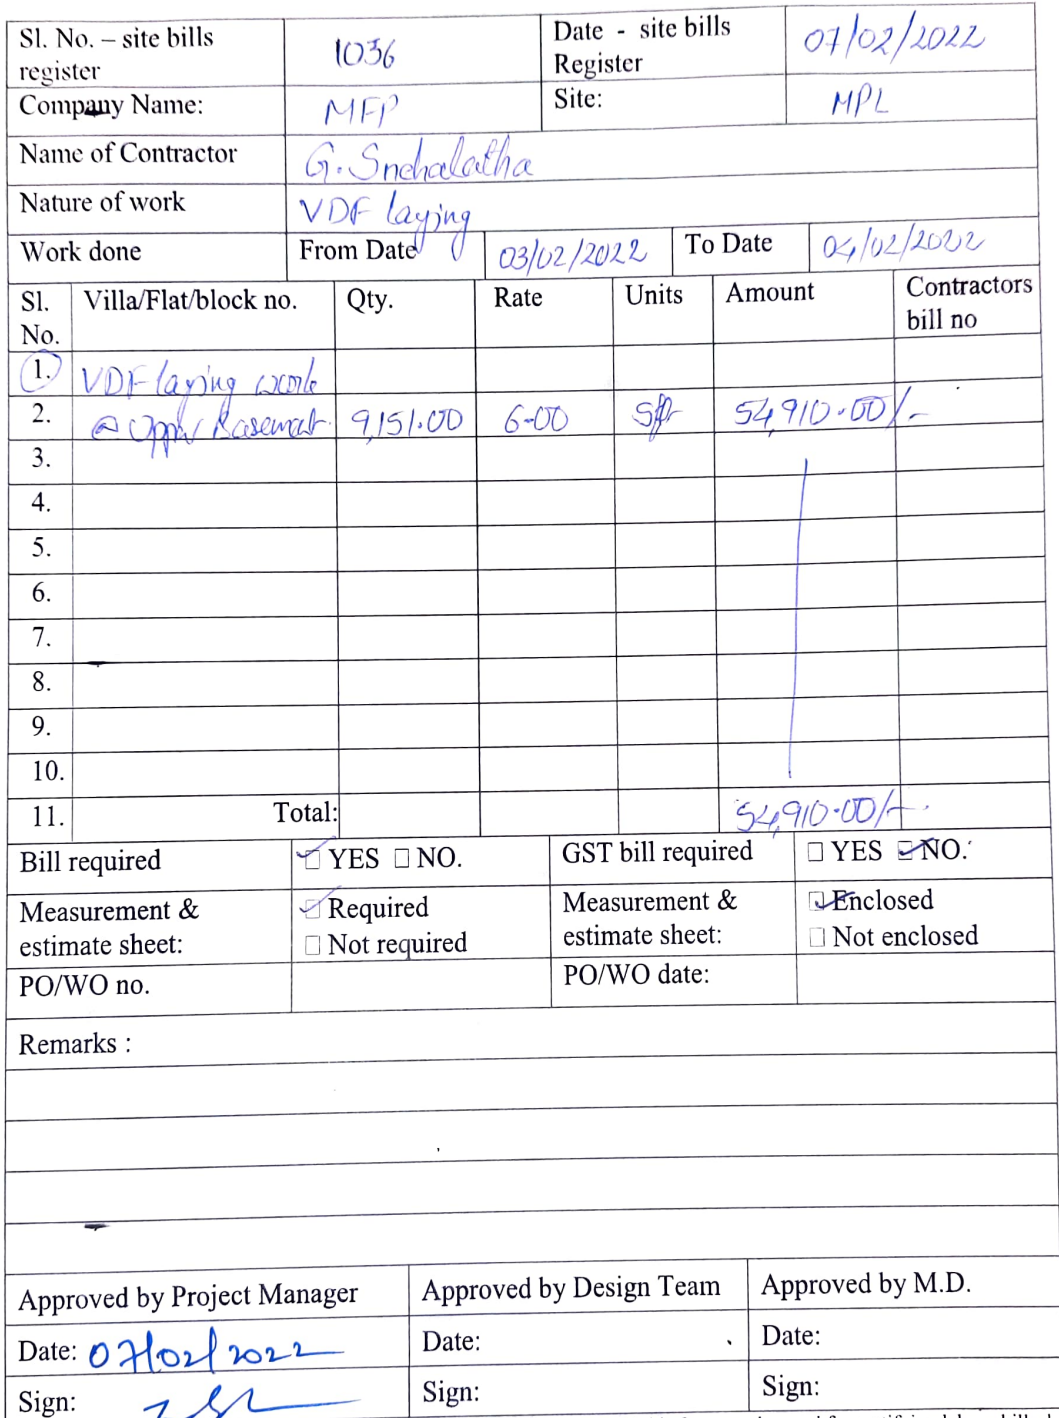 Sl. No. – site bills register 1036 Date - site bills Register 07/02/2022
Company Name: MFP Site: MPL
Name of Contractor G. Snehalatha
Nature of work VDF laying
Work done From Date 03/02/2022 To Date 04/02/2022
Sl. No. Villa/Flat/block no. Qty. Rate Units Amount Contractors bill no
1. VDF laying work
2. @ Upper Basement 9,151.00 6-00 Sft 54,910.00/-
3.
4.
5.
6.
7.
8.
9.
10.
11. Total: 54,910.00/-
Bill required YES NO. GST bill required YES NO.
Measurement & estimate sheet: Required Not required Measurement & estimate sheet: Enclosed Not enclosed
PO/WO no. PO/WO date:
Remarks :
Approved by Project Manager Approved by Design Team Approved by M.D.
Date: 07/02/2022 Date: Date:
Sign: Sign: Sign: